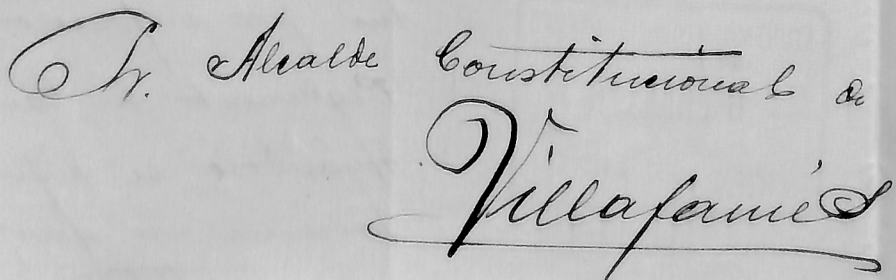 Sr. Alcalde Constitucional de
Villafamés